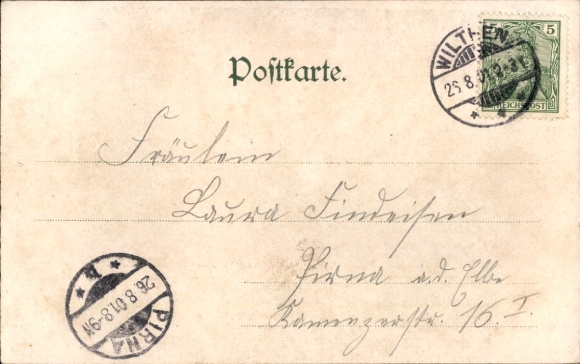 Postkarte.
5
REICHSPOST
WILTHEN
26.8.01.2-3N
Fräulein
Laura Findeisen
Pirna a.d. Elbe
Kamenzerstr. 16.I.
PIRNA
26.8.01.8-9N